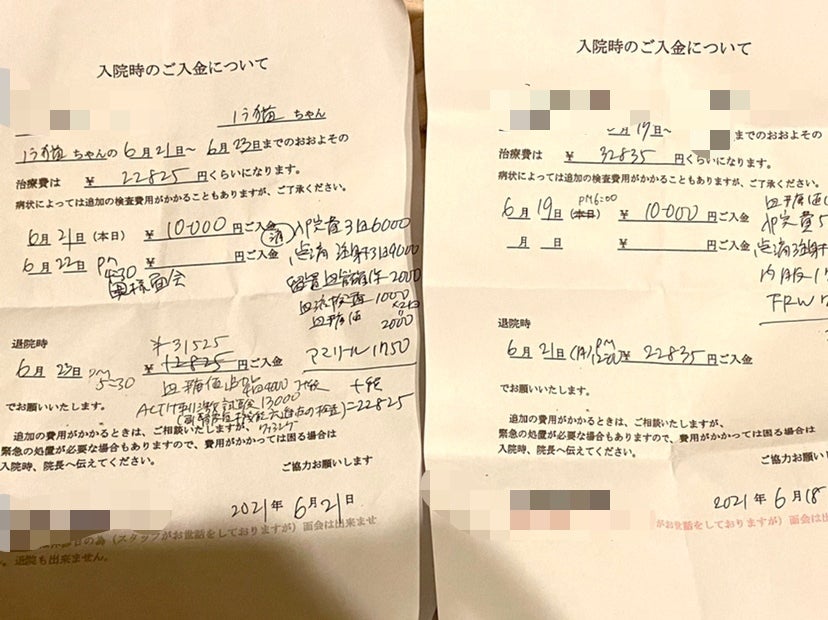 入院時のご入金について
ちゃん
ちゃんの 6月21日～ 6月23日までのおおよその
治療費は ￥ 22825 円くらいになります。
病状によっては追加の検査費用がかかることもありますが、ご了承ください。
6月21日(本日) ￥ 10000 円ご入金 済
6月22日 PM 4:30 ￥ 円ご入金
面会
入院費3日6000
点滴 注射3日9000
留置血管確保 2000
血液検査 1000
血糖値 ×2回
2000
アマリール 1750
退院時
￥31525
6月23日 PM 5:30 ￥ 12825 円ご入金
血糖値追加 4回4000
ACTH刺激試験 13000
=22825
でお願いいたします。
追加の費用がかかるときは、ご相談いたしますが、
緊急の処置が必要な場合もありますので、費用がかかっては困る場合は
入院時、院長へ伝えてください。
ご協力お願いします
2021年 6月21日
の為(スタッフがお世話をしておりますが)面会は出来ませ
。退院も出来ません。
入院時のご入金について
月19日～
までのおおよその
治療費は ￥ 32835 円くらいになります。
病状によっては追加の検査費用がかかることもありますが、ご了承ください。
6月19日(本日) PM6:00 ￥ 10000 円ご入金
月 日 ￥ 円ご入金
血糖値
入院費
点滴 注射
内服
退院時
6月21日(月) PM 12:00 ￥ 22835 円ご入金
でお願いいたします。
追加の費用がかかるときは、ご相談いたしますが、
緊急の処置が必要な場合もありますので、費用がかかっては困る場合は
入院時、院長へ伝えてください。
ご協力お願いし
2021年 6月18
がお世話をしておりますが)面会は出